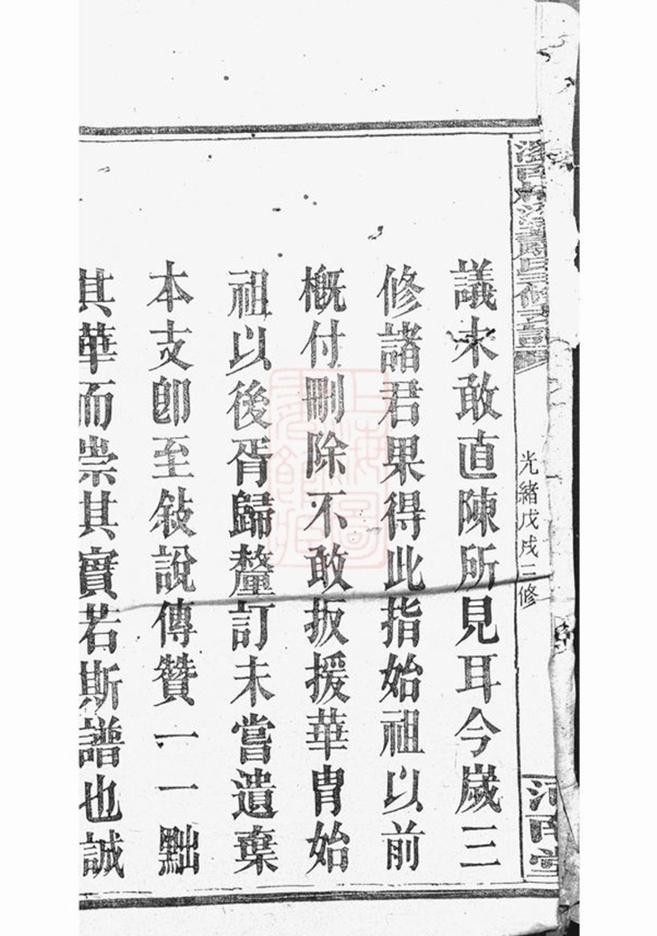 光緒戊戌三修
議未敢直陳所見耳今歲三
修諸君果得此指始祖以前
概付刪除不敢扳援華冑始
祖以後胥歸釐訂未嘗遺棄
本支卽至敍說傳贊一一黜
其華而崇其實若斯譜也誠